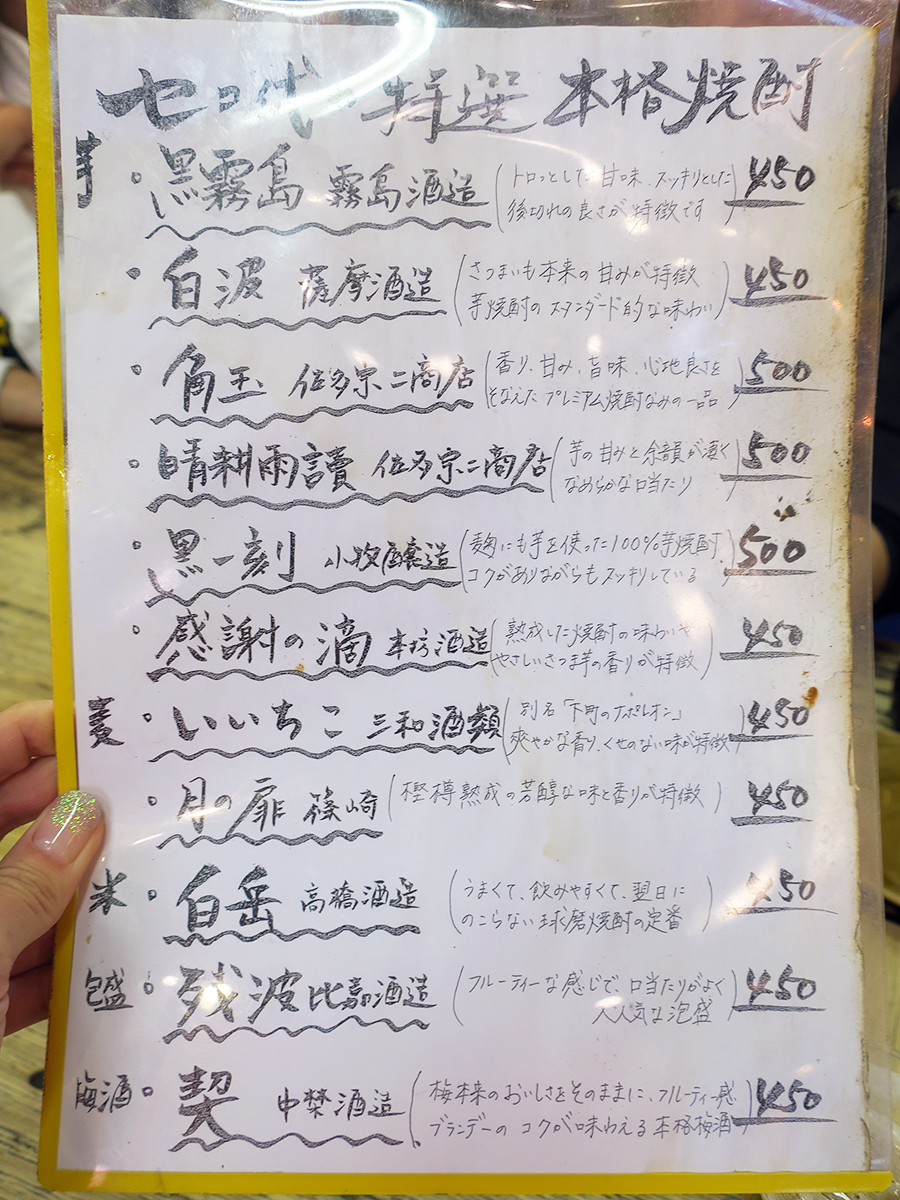 センベロ 特選 本格焼酎
芋・黒霧島 霧島酒造 (トロッとした甘味、スッキリとした 450
後切れの良さが特徴です)
・白波 薩摩酒造 (さつまいも本来の甘みが特徴 450
芋焼酎のスタンダード的な味わい)
・角玉 佐多宗二商店 (香り、甘み、旨味、心地良さを 500
そなえたプレミアム焼酎なみの一品)
・晴耕雨讀 佐多宗二商店 (芋の甘みと余韻が凄く 500
なめらかな口当たり)
・黒一刻 小牧醸造 (麹にも芋を使った100%芋焼酎 500
コクがありながらもスッキリしている)
・感謝の滴 本坊酒造 (熟成した焼酎の味わいや 450
やさしいさつま芋の香りが特徴)
麦・いいちこ 三和酒類 (別名「下町のナポレオン」 450
爽やかな香り、くせのない味が特徴)
・月の扉 篠崎 (樫樽熟成の芳醇な味と香りが特徴) 450
米・白岳 高橋酒造 (うまくて、飲みやすくて、翌日に 450
のこらない球磨焼酎の定番)
泡盛・残波 比嘉酒造 (フルーティーな感じで、口当たりがよく 450
人気な泡盛)
梅酒・契 中榮酒造 (梅本来のおいしさをそのままに、フルーティー感 450
ブランデーのコクが味わえる本格梅酒)